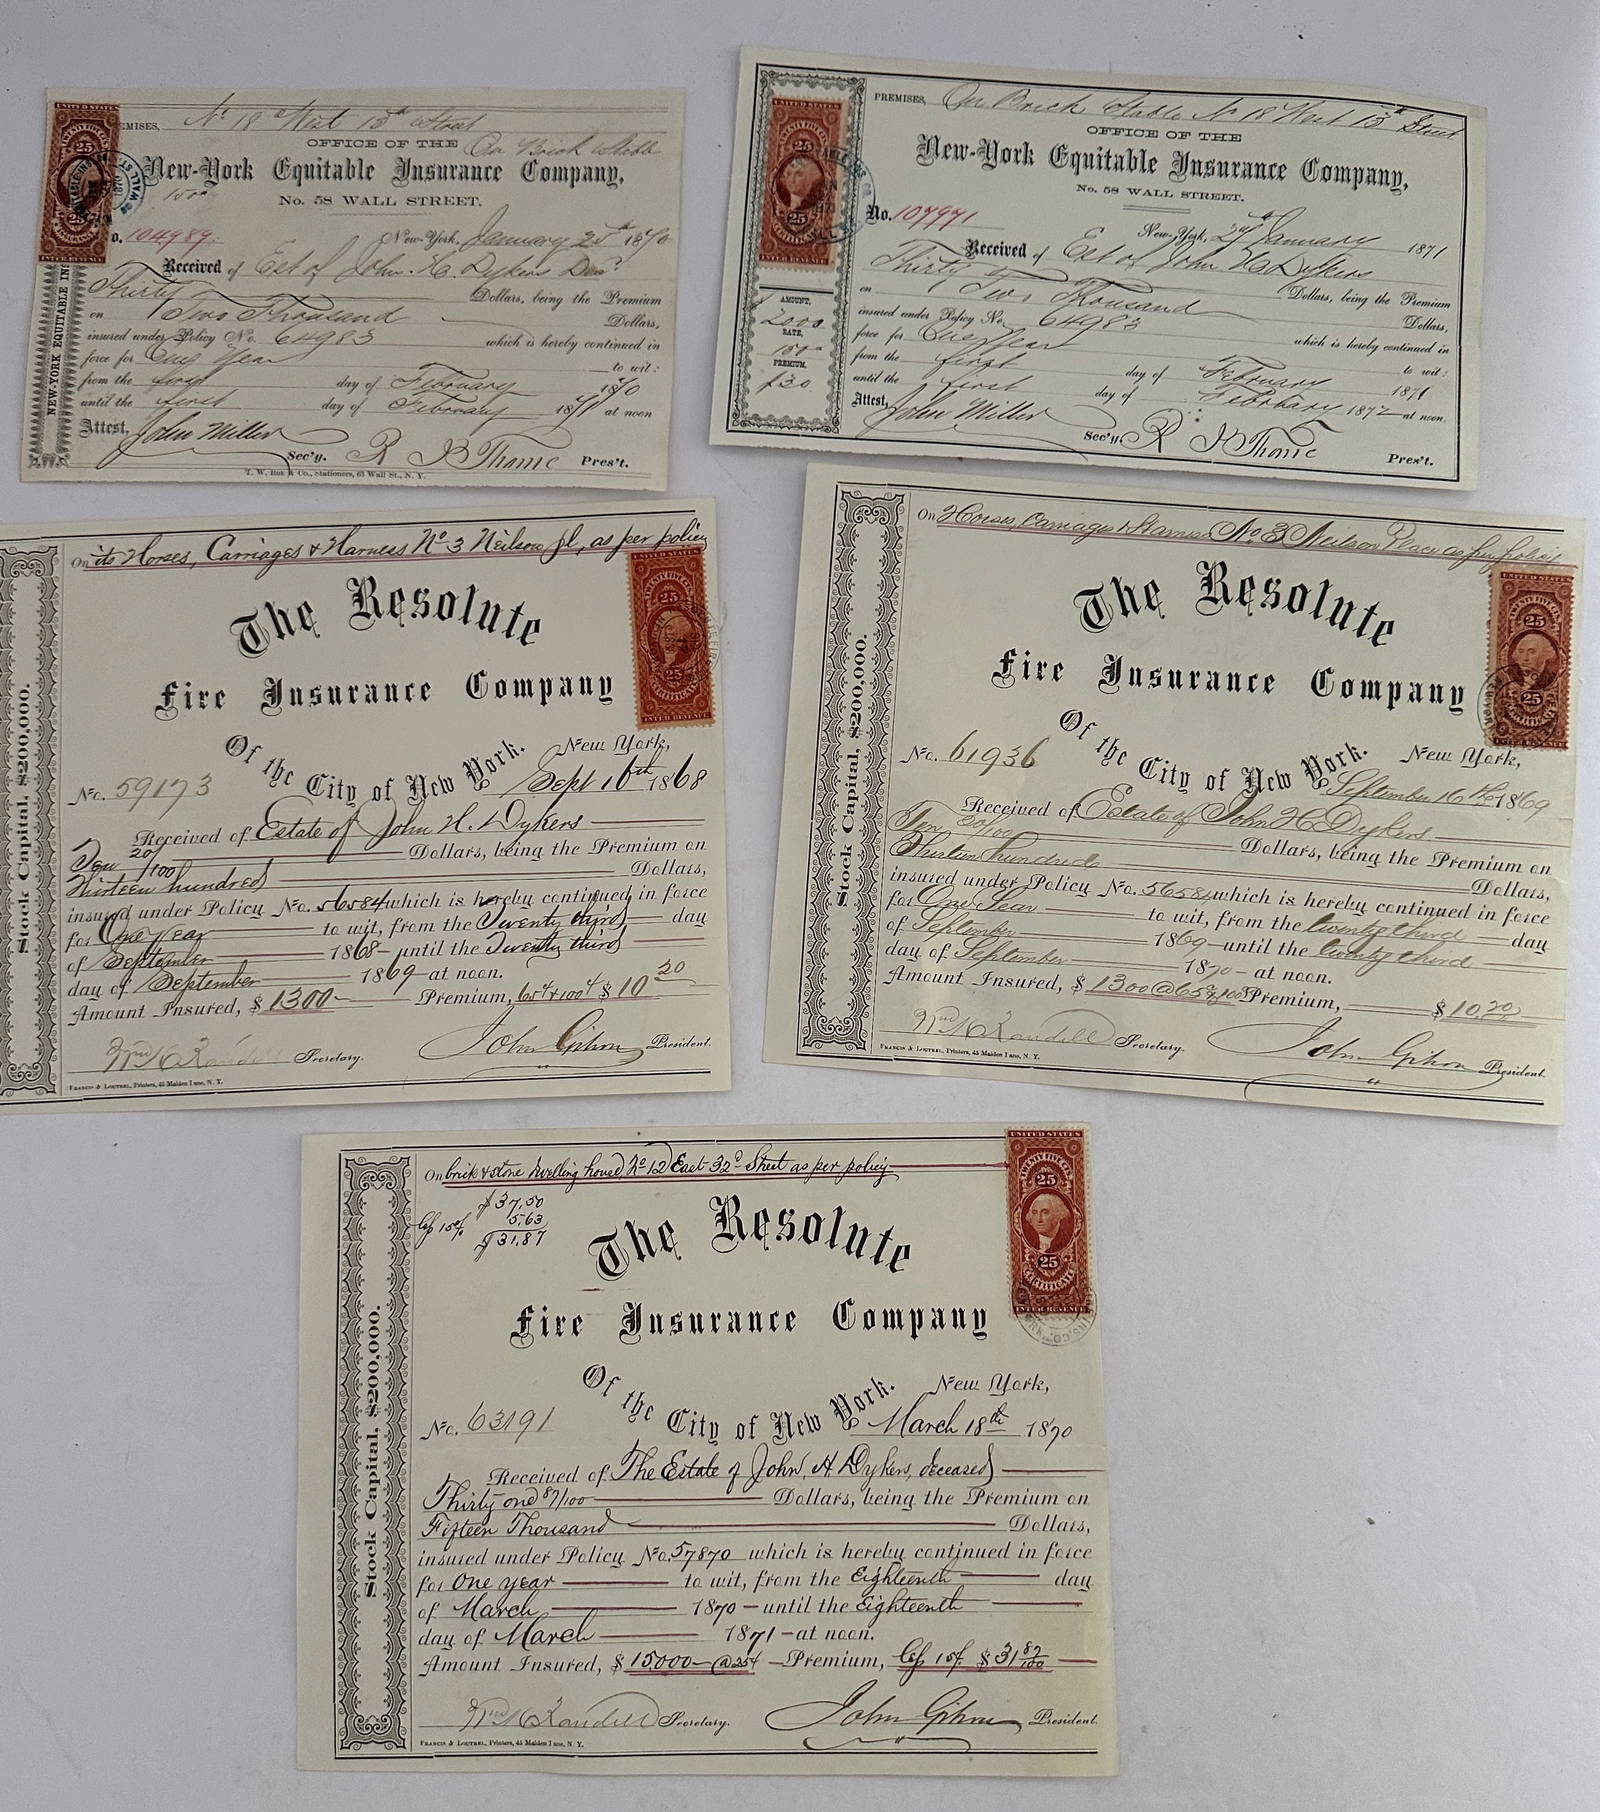 UNITED STATES
PREMISES, No 18 West 13th Street
OFFICE OF THE On Brick Stable
New-York Equitable Insurance Company,
No. 58 WALL STREET.
25
25
INTER. REVENUE
No. 104989. New-York, January 25th 1870
Received of Est of John. H. Dykers Decd.
Thirty Dollars, being the Premium
on Two Thousand Dollars,
insured under Policy No. 64983 which is hereby continued in
force for One Year to wit:
from the first day of February 1870
until the first day of February 1871 at noon
Attest, John Miller Sec'y. R J Thorne Pres't.
NEW-YORK EQUITABLE IN
T. W. & Co., Stationers, 63 Wall St., N. Y.
PREMISES, On Brick Stable No 18 West 13th Street
OFFICE OF THE
New-York Equitable Insurance Company,
No. 58 WALL STREET.
25
25
No. 107971 New-York, 27 January 1871
Received of Est of John H Dykers
Thirty Dollars, being the Premium
on Two Thousand Dollars,
insured under Policy No. 64983 which is hereby continued in
force for One Year to wit:
from the first day of February 1871
until the first day of February 1872 at noon.
Attest, John Miller Sec'y. R J Thorne Pres't.
AMOUNT,
2000
RATE,
PREMIUM,
$30
On its Horses, Carriages & Harness No 3 Neilson pl, as per policy
The Resolute
Fire Insurance Company
Of the City of New York.
New York,
No. 59173 Sept 16th 1868
Received of Estate of John H. Dykers
Ten 20/100 Dollars, being the Premium on
Thirteen hundred Dollars,
insured under Policy No. 56584 which is hereby continued in force
for One year to wit, from the Twenty third day
of September 1868 - until the Twenty third
day of September 1869 - at noon.
Amount Insured, $ 1300 - Premium, 65¢ + 100¢ $ 10 20
Wm M Randell Secretary. John Gihon President.
Francis & Loutrel, Printers, 45 Maiden Lane, N. Y.
Stock Capital, $200,000.
UNITED STATES
25
25
INTER. REVENUE
On Horses, Carriages & Harness No 3 Neilson Place as per policy
The Resolute
Fire Insurance Company
Of the City of New York.
New York,
No. 61936 September 16th 1869
Received of Estate of John H Dykers
Ten 20/100 Dollars, being the Premium on
Thirteen hundred Dollars,
insured under Policy No. 56584 which is hereby continued in force
for One Year to wit, from the twenty third day
of September 1869 - until the twenty third
day of September 1870 - at noon.
Amount Insured, $ 1300 @ 65¢ & 100 Premium, $ 10.20
Wm M Randell Secretary. John Gihon President.
Francis & Loutrel, Printers, 45 Maiden Lane, N. Y.
Stock Capital, $200,000.
UNITED STATES
25
25
CERTIFICATE
INTER. REVENUE
On brick & stone dwelling house, No 12 East 32d Street as per policy
$ 37,50
15% 5,63
$ 31,87
The Resolute
Fire Insurance Company
Of the City of New York.
New York,
No. 63191 March 18th 1870
Received of The Estate of John, H Dykers, deceased
Thirty one 87/100 Dollars, being the Premium on
Fifteen Thousand Dollars,
insured under Policy No. 57870 which is hereby continued in force
for One year to wit, from the Eighteenth day
of March 1870 - until the Eighteenth
day of March 1871 - at noon.
Amount Insured, $ 15,000 - @ 25¢ - Premium, 15% $ 31 87/100
Wm M Randell Secretary. John Gihon President.
Francis & Loutrel, Printers, 45 Maiden Lane, N. Y.
Stock Capital, $200,000.
UNITED STATES
TWENTY FIVE CTS.
25
25
CERTIFICATE
INTER. REVENUE